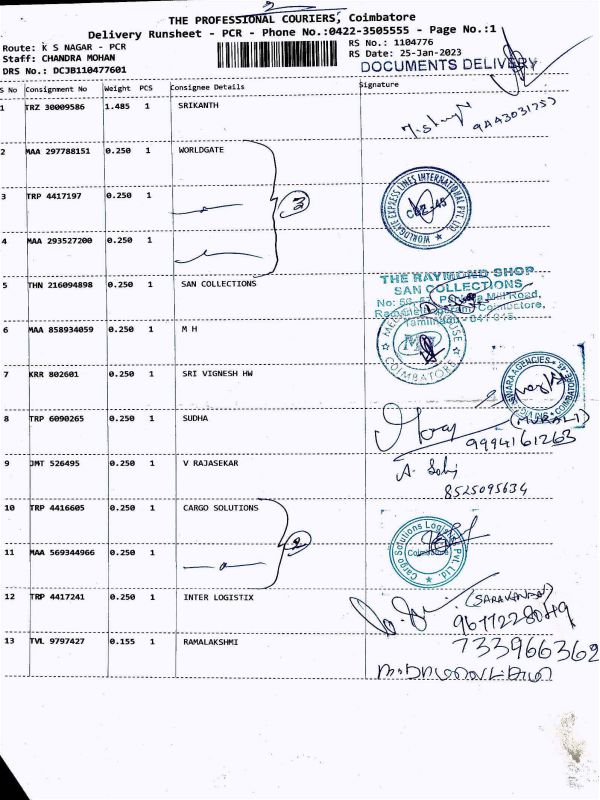 THE PROFESSIONAL COURIERS, Coimbatore
Delivery Runsheet - PCR - Phone No.:0422-3505555 - Page No.:1
Route: K S NAGAR - PCR
RS No.: 1104776
Staff: CHANDRA MOHAN
RS Date: 25-Jan-2023
DRS No.: DCJB110477601
DOCUMENTS DELIVERY
S No Consignment No Weight PCS Consignee Details Signature
1 TRZ 30009586 1.485 1 SRIKANTH
2 MAA 297788151 0.250 1 WORLDGATE
3 TRP 4417197 0.250 1
3
WORLDGATE EXPRESS LINES INTERNATIONAL PVT. LTD.
4 MAA 293527200 0.250 1
5 THN 216094898 0.250 1 SAN COLLECTIONS
THE RAYMOND SHOP
SAN COLLECTIONS
Mill Road,
Coimbatore,
Tamilnadu
6 MAA 858934059 0.250 1 M H
COIMBATORE
7 KRR 802601 0.250 1 SRI VIGNESH HW
AGENCIES
8 TRP 6090265 0.250 1 SUDHA
(MURALI)
9994161263
9 JMT 526495 0.250 1 V RAJASEKAR
8525095634
10 TRP 4416605 0.250 1 CARGO SOLUTIONS
2
Cargo Solutions Logistics Pvt. Ltd.
Coimbatore
11 MAA 569344966 0.250 1
12 TRP 4417241 0.250 1 INTER LOGISTIX
(SARAVANAN)
9677228049
13 TVL 9797427 0.155 1 RAMALAKSHMI
733966362